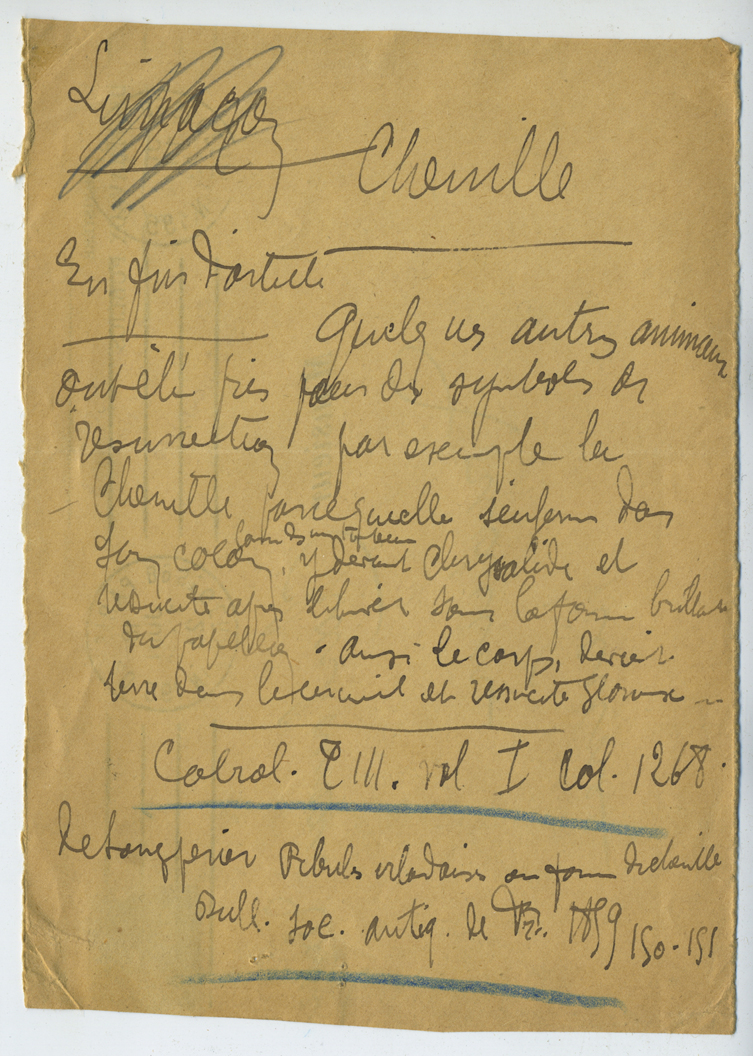 Limaçon
Chenille
En fin d'article
Quelques autres animaux
ont été pris pour des symboles de
résurrection par exemple la
Chenille parce qu'elle s'enferme dans
son cocon, comme dans un tombeau, y devient chrysalide et
ressuscite après l'hiver sous la forme brillante
du papillon - ainsi le corps, devient
terre dans le cercueil et ressuscite glorieux -
Cabrol. T III. vol I col. 1268.
De Longpérier Fibules irlandaises en forme de chenille
Bull. soc. antiq. de Fr. 1859 150-151